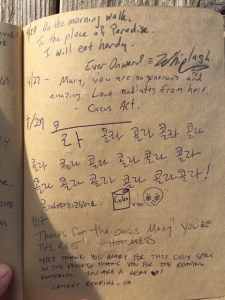 On the morning walk,
In the place of Paradise.
I will eat hardy.
Ever Onward = Whiplash
7/27 - Mary, you are so generous and
amazing. Love radiates from here.
- Circus Act.
7/29
콜라 콜라 콜라 콜라
콜라 콜라 콜라 콜라 콜라 콜라
콜라 콜라 콜라 콜라 콜라 콜라!
Coke
Thanks for the oasis Mary! You're
the
- HOT MESS
YET THANK YOU MARY FOR THIS COZY SPACE
IN THE THANK YOU FOR THE READING
MATERIAL. YOU ARE A GEM